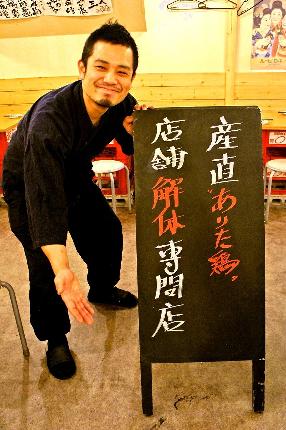 産直ありた鶏。
店舗解体専門店